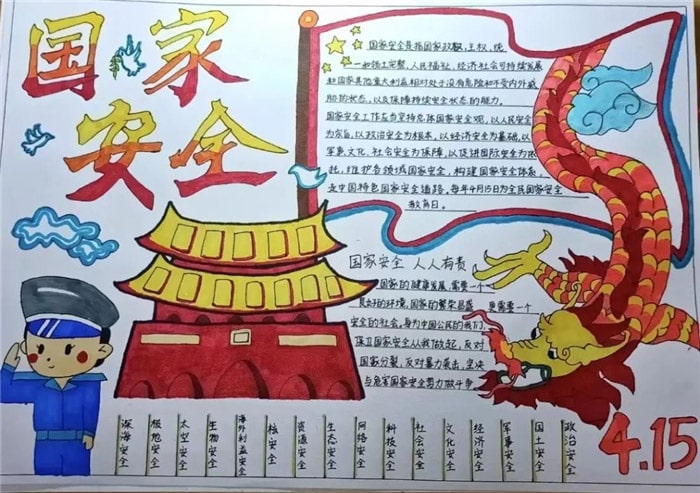 国家
安全
国家安全是指国家政权,主权,统
一和领土完整,人民福祉,经济社会可持续发展
和国家其他重大利益相对处于没有危险和不受内外威
胁的状态,以及保障持续安全状态的能力。
国家安全工作应当坚持总体国家安全观,以人民安全
为宗旨,以政治安全为根本,以经济安全为基础,以
军事、文化、社会安全为保障,以促进国际安全为依
托,维护各领域国家安全,构建国家安全体系,
走中国特色国家安全道路,每年4月15日为全民国家安全
教育日。
国家安全 人人有责
国家的健康发展,需要一个
良好的环境,国家的繁荣昌盛 更需要一个
安全的社会。身为中国公民的我们,
保卫国家安全从我做起,反对
国家分裂,反对暴力袭击,坚决
与危害国家安全势力做斗争
深海安全
极地安全
太空安全
生物安全
海外利益安全
核安全
资源安全
生态安全
网络安全
科技安全
社会安全
文化安全
经济安全
军事安全
国土安全
政治安全
4.15